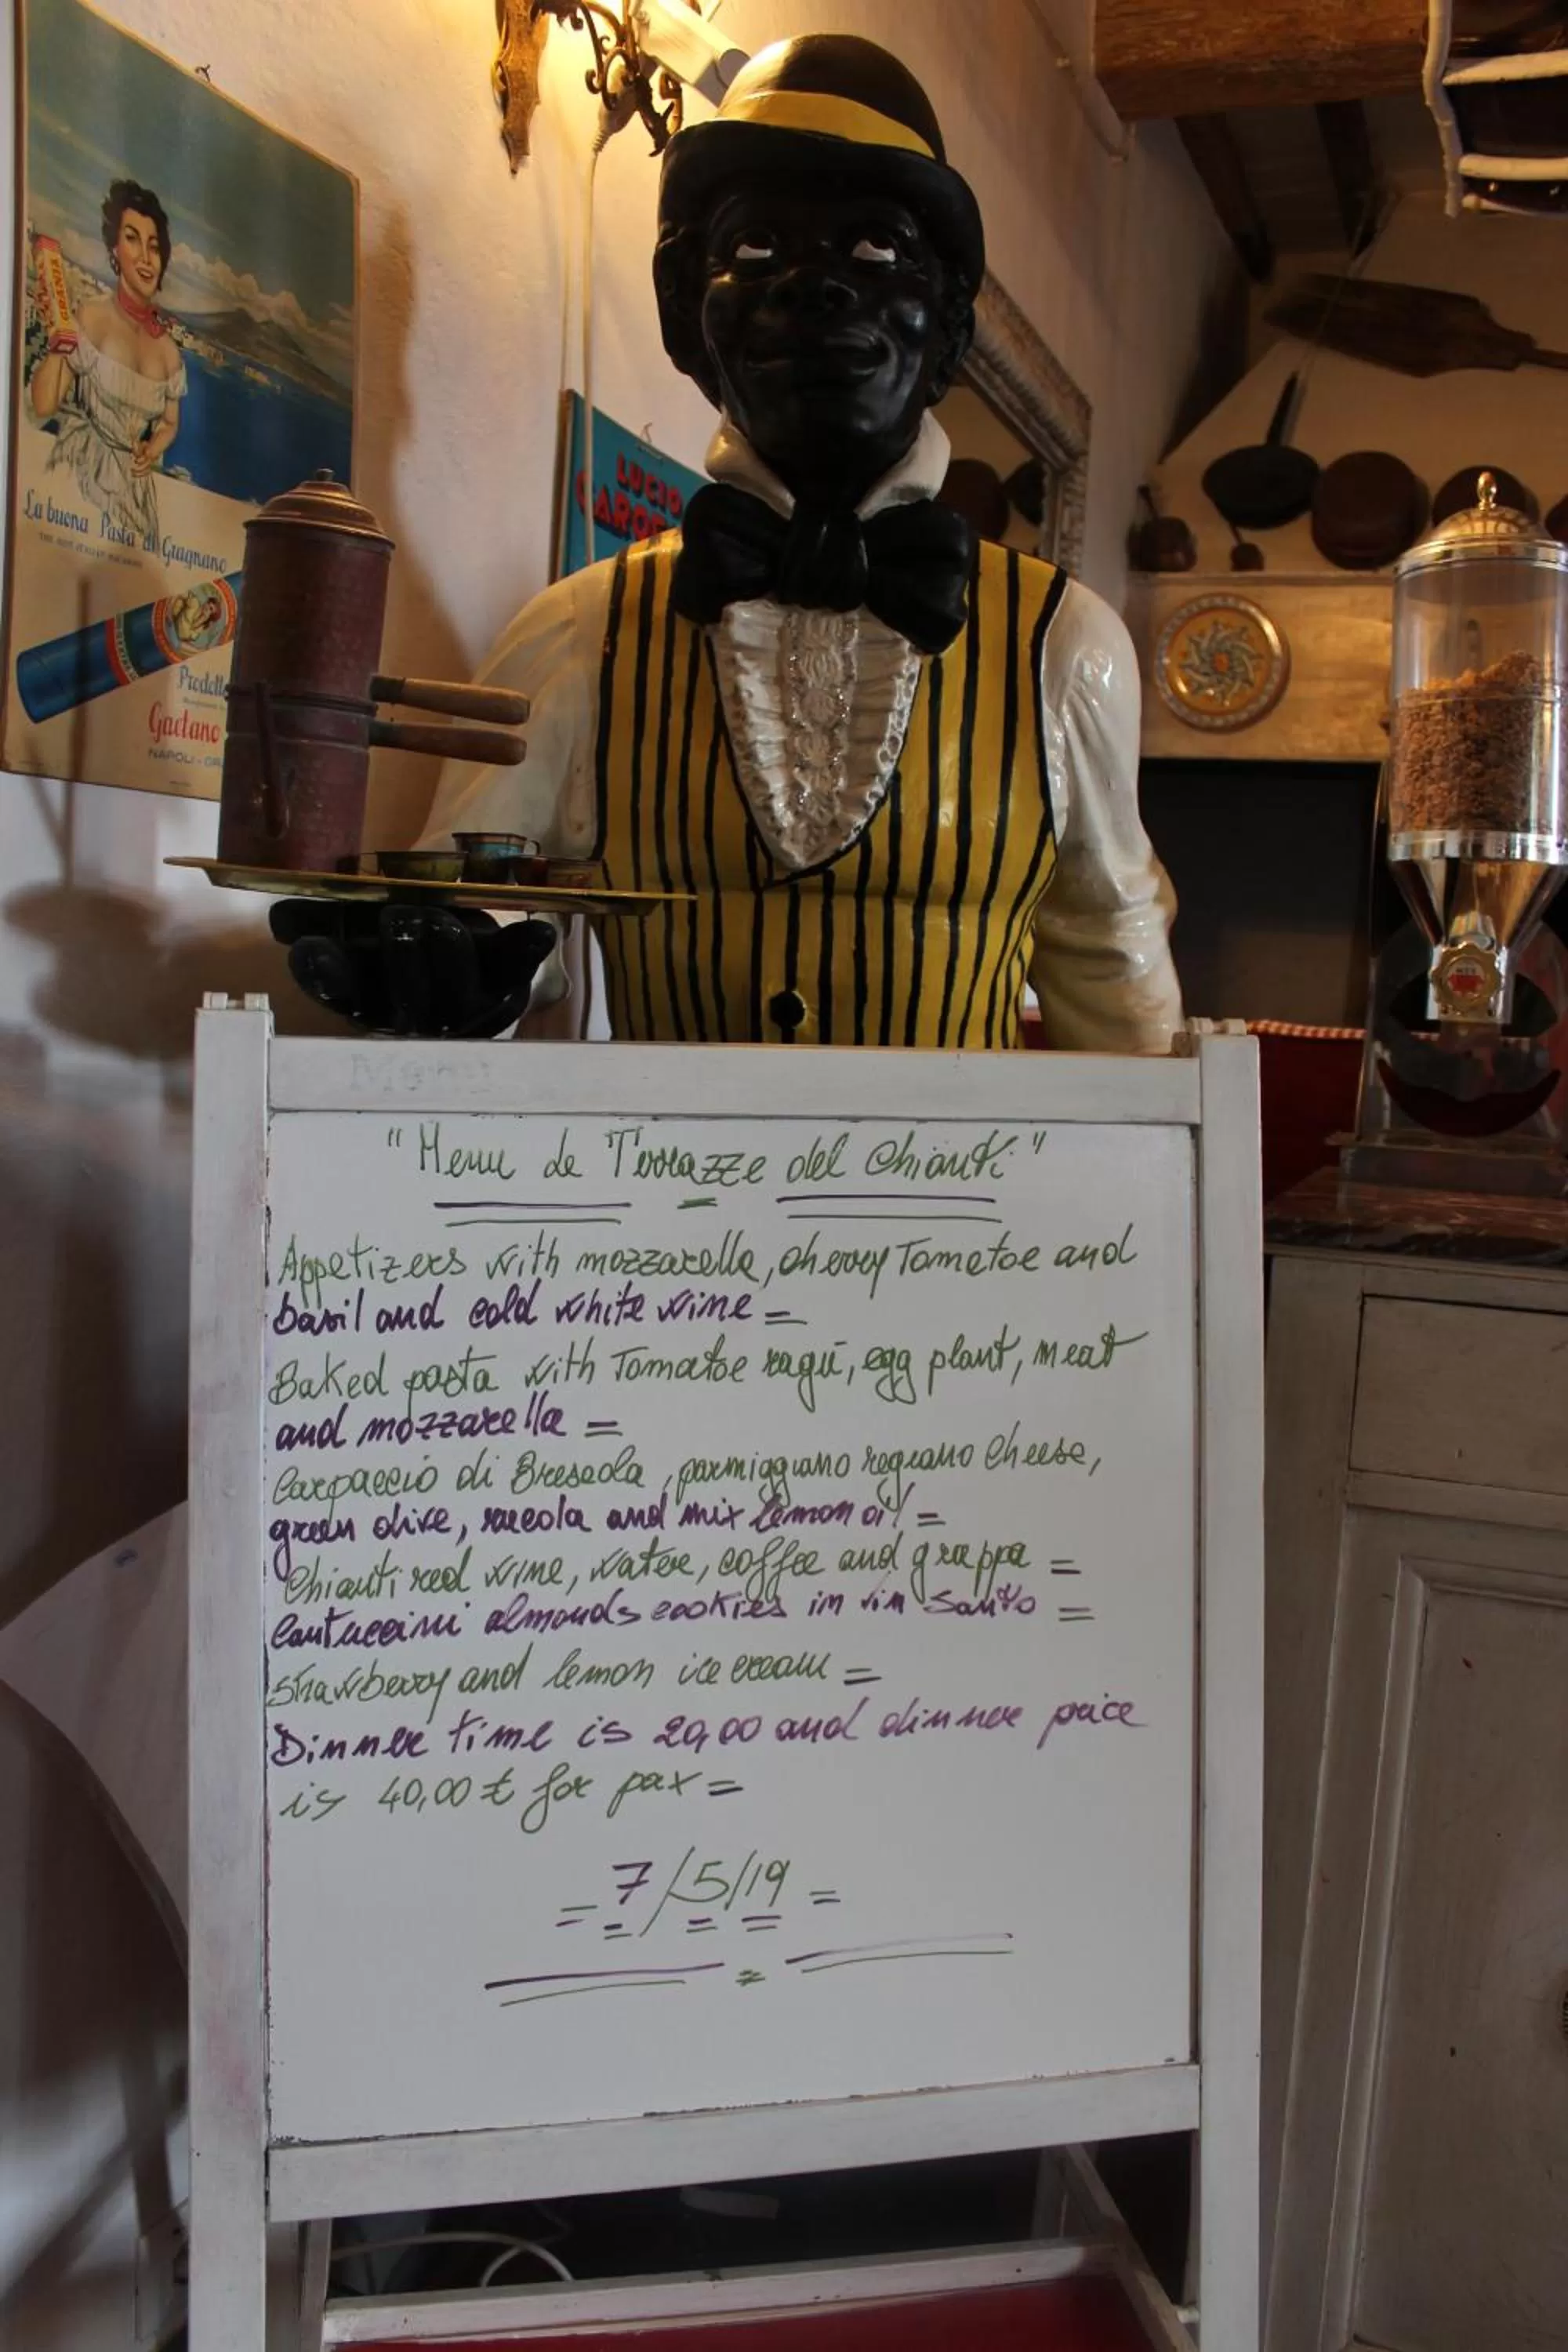 La buona Pasta di Gragnano
Gaetano
NAPOLI - GRA
LUCIO
GAROF
Menu
"Menu Le Terrazze del Chianti"
Appetizers with mozzarella, cherry Tomatoe and
basil and cold white wine =
Baked pasta with Tomatoe ragù, egg plant, meat
and mozzarella =
Carpaccio di Breseola, parmiggiano regiano cheese,
green olive, rucola and mix lemon oil =
Chianti red wine, water, coffee and grappa =
Cantuccini almonds cookies in vin Santo =
Strawberry and lemon ice cream =
Dinner time is 20,00 and dinner price
is 40,00 € for pax =
= 7/5/19 =